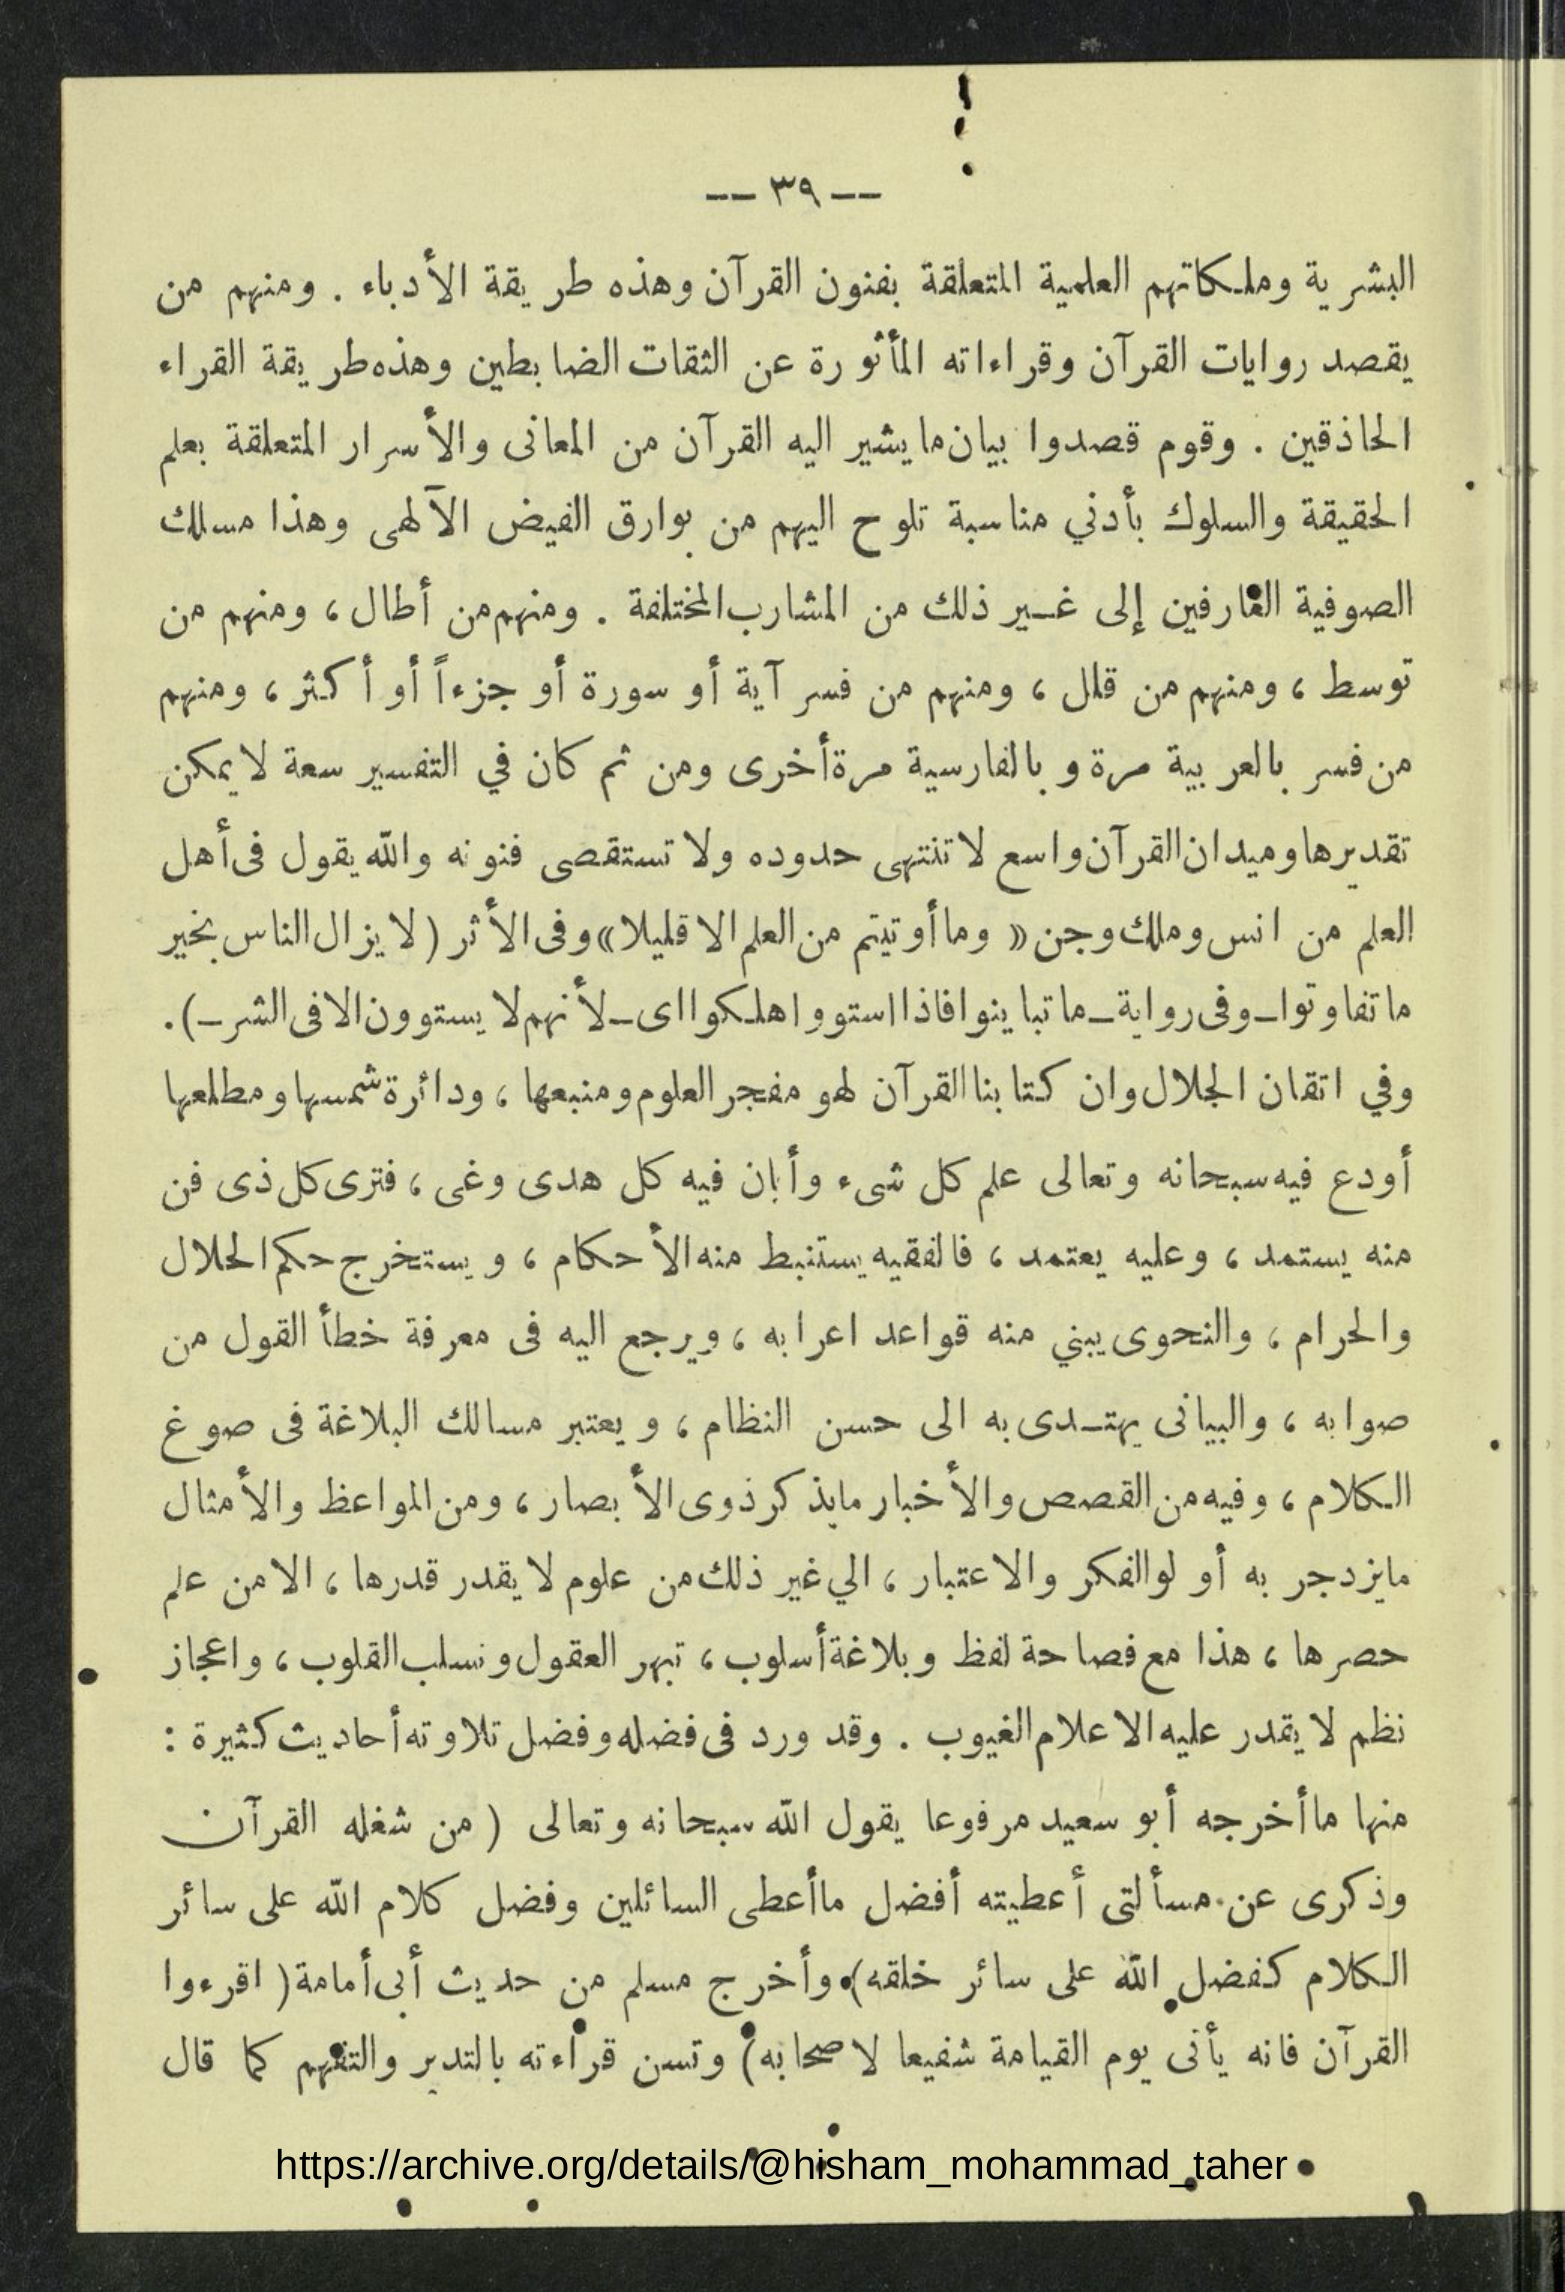 -- ٣٩ --
البشرية وملكاتهم العلمية المتعلقة بفنون القرآن وهذه طريقة الأدباء . ومنهم من
يقصد روايات القرآن وقراءاته المأثورة عن الثقات الضابطين وهذه طريقة القراء
الحاذقين . وقوم قصدوا بيان ما يشير اليه القرآن من المعانى والأسرار المتعلقة بعلم
الحقيقة والسلوك بأدني مناسبة تلوح اليهم من بوارق الفيض الآلهى وهذا مسلك
الصوفية العارفين إلى غير ذلك من المشارب المختلفة . ومنهم من أطال ، ومنهم من
توسط ، ومنهم من قلل ، ومنهم من فسر آية أو سورة أو جزءاً أو أكثر ، ومنهم
من فسر بالعربية مرة وبالفارسية مرة أخرى ومن ثم كان في التفسير سعة لا يمكن
تقديرها وميدان القرآن واسع لا تنتهى حدوده ولا تستقصى فنونه والله يقول فى أهل
العلم من انس وملك وجن « وما أوتيتم من العلم الا قليلا » وفى الأثر ( لا يزال الناس بخير
ما تفاوتوا ــ وفى رواية ــ ما تباينوا فاذا استووا هلكوا اى ــ لأنهم لا يستوون الا فى الشر ــ ) .
وفي اتقان الجلال وان كتابنا القرآن لهو مفجر العلوم ومنبعها ، ودائرة شمسها ومطلعها
أودع فيه سبحانه وتعالى علم كل شىء وأبان فيه كل هدى وغى ، فترى كل ذى فن
منه يستمد ، وعليه يعتمد ، فالفقيه يستنبط منه الأحكام ، ويستخرج حكم الحلال
والحرام ، والنحوى يبني منه قواعد اعرابه ، ويرجع اليه فى معرفة خطأ القول من
صوابه ، والبيانى يهتدى به الى حسن النظام ، ويعتبر مسالك البلاغة فى صوغ
الكلام ، وفيه من القصص والأخبار ما يذكر ذوى الأبصار ، ومن المواعظ والأمثال
ما يزدجر به أو لو الفكر والاعتبار ، الي غير ذلك من علوم لا يقدر قدرها ، الا من علم
حصرها ، هذا مع فصاحة لفظ وبلاغة أسلوب ، تبهر العقول وتسلب القلوب ، واعجاز
نظم لا يقدر عليه الا علام الغيوب . وقد ورد فى فضله وفضل تلاوته أحاديث كثيرة :
منها ما أخرجه أبو سعيد مرفوعا يقول الله سبحانه وتعالى ( من شغله القرآن
وذكرى عن مسألتى أعطيته أفضل ما أعطى السائلين وفضل كلام الله على سائر
الكلام كفضل الله على سائر خلقه ) وأخرج مسلم من حديث أبى أمامة ( اقرءوا
القرآن فانه يأتى يوم القيامة شفيعا لاصحابه ) وتسن قراءته بالتدبر والتفهم كما قال
https://archive.org/details/@hisham_mohammad_taher